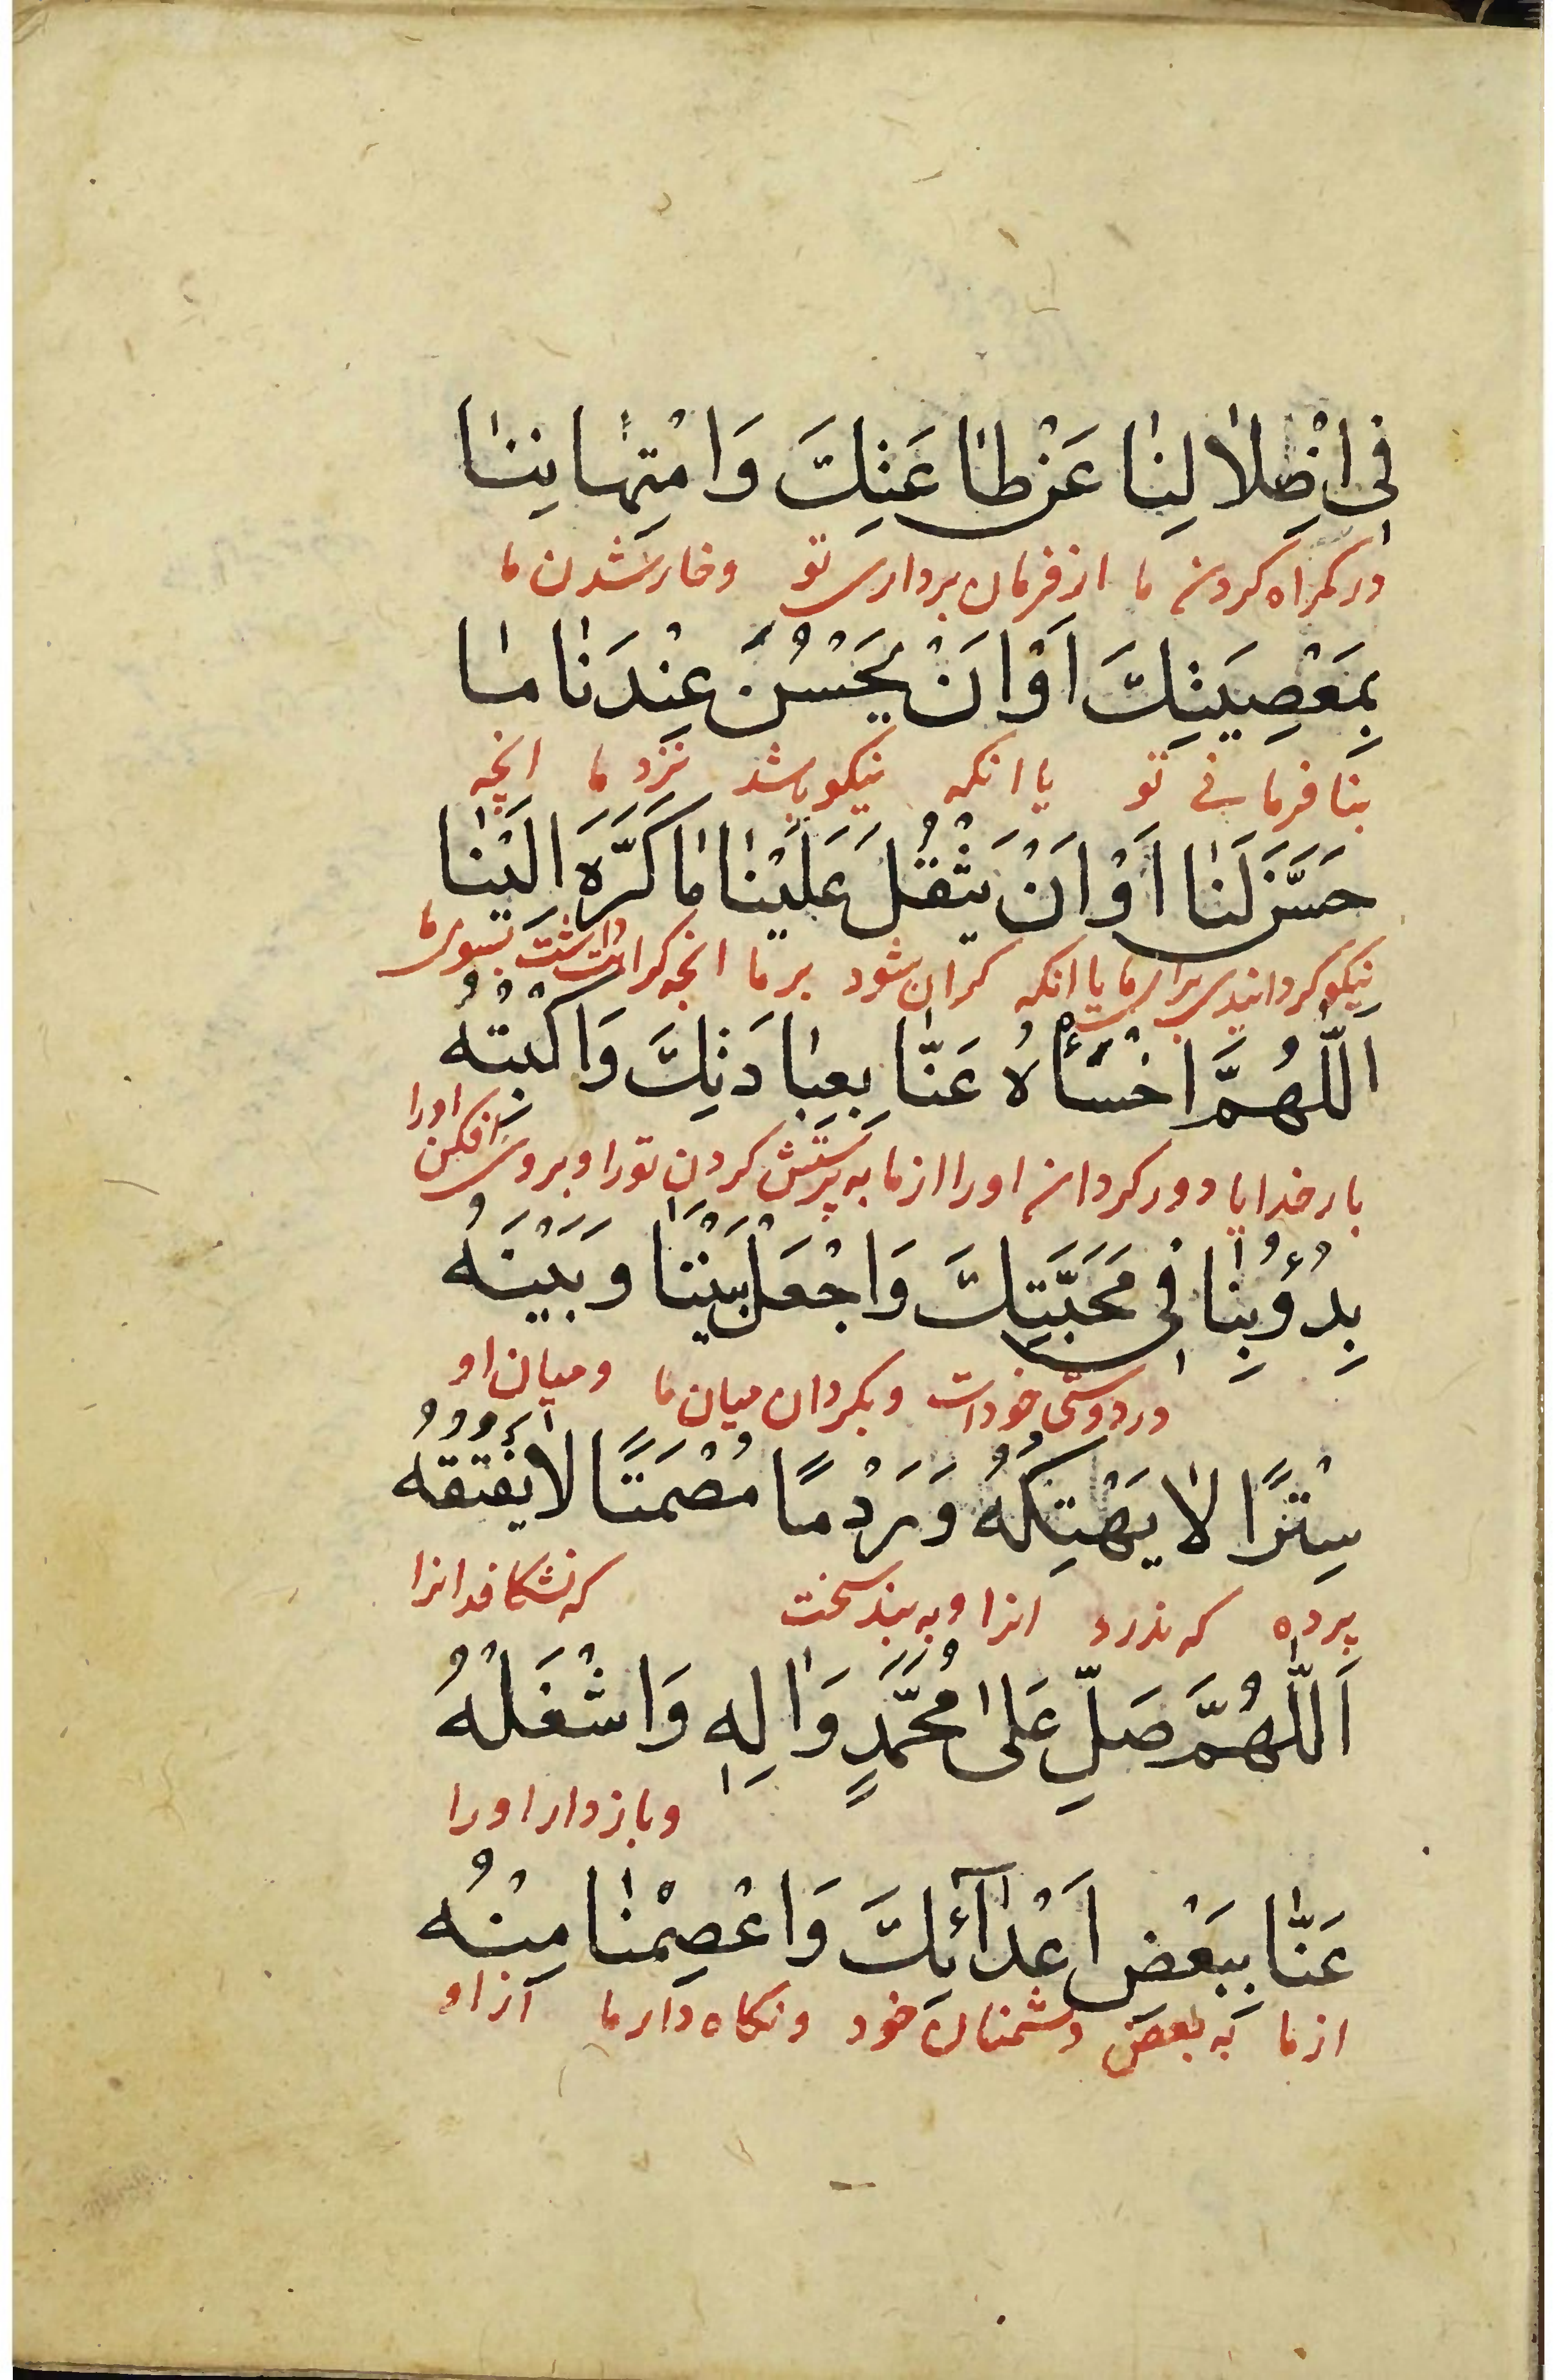 فِي اِضْلٰالِنٰا عَنْ طٰاعَتِكَ وَامْتِهٰانِنٰا
در کمراه کردن ما از فرمان برداری تو وخار شدن ما
بِمَعْصِيَتِكَ اَوْ اَنْ يَحْسُنَ عِنْدَنٰا مٰا
بنا فرمانی تو یا انکه نیکو باشد نزد ما انچه
حَسَّنَ لَنٰا اَوْ اَنْ يَثْقُلَ عَلَيْنٰا مٰا كَرَّهَ اِلَيْنٰا
نیکو کردانیدی برای ما یا انکه کران شود بر ما انچه کراهت داشت بسوی ما
اَللّٰهُمَّ اخْسَأْهُ عَنّٰا بِعِبٰادَتِكَ وَاكْبُتْهُ
بار خدایا دور کردان او را از ما به پرستش کردن تو را و بروی افکن او را
بِدُؤُبِنٰا فِي مَحَبَّتِكَ وَاجْعَلْ بَيْنَنٰا وَبَيْنَهُ
در دوستی خودات و بکردان میان ما و میان او
سِتْرًا لٰا يَهْتِكُهُ وَرَدْمًا مُصْمَتًا لٰا يَفْتُقُهُ
پرده که ندرد انرا و به بند سخت که نشکافد انرا
اَللّٰهُمَّ صَلِّ عَلىٰ مُحَمَّدٍ وَاٰلِهِ وَاشْغَلْهُ
و باز دار او را
عَنّٰا بِبَعْضِ اَعْدٰآئِكَ وَاعْصِمْنٰا مِنْهُ
از ما به بعض دشمنان خود و نکاه دار ما از او